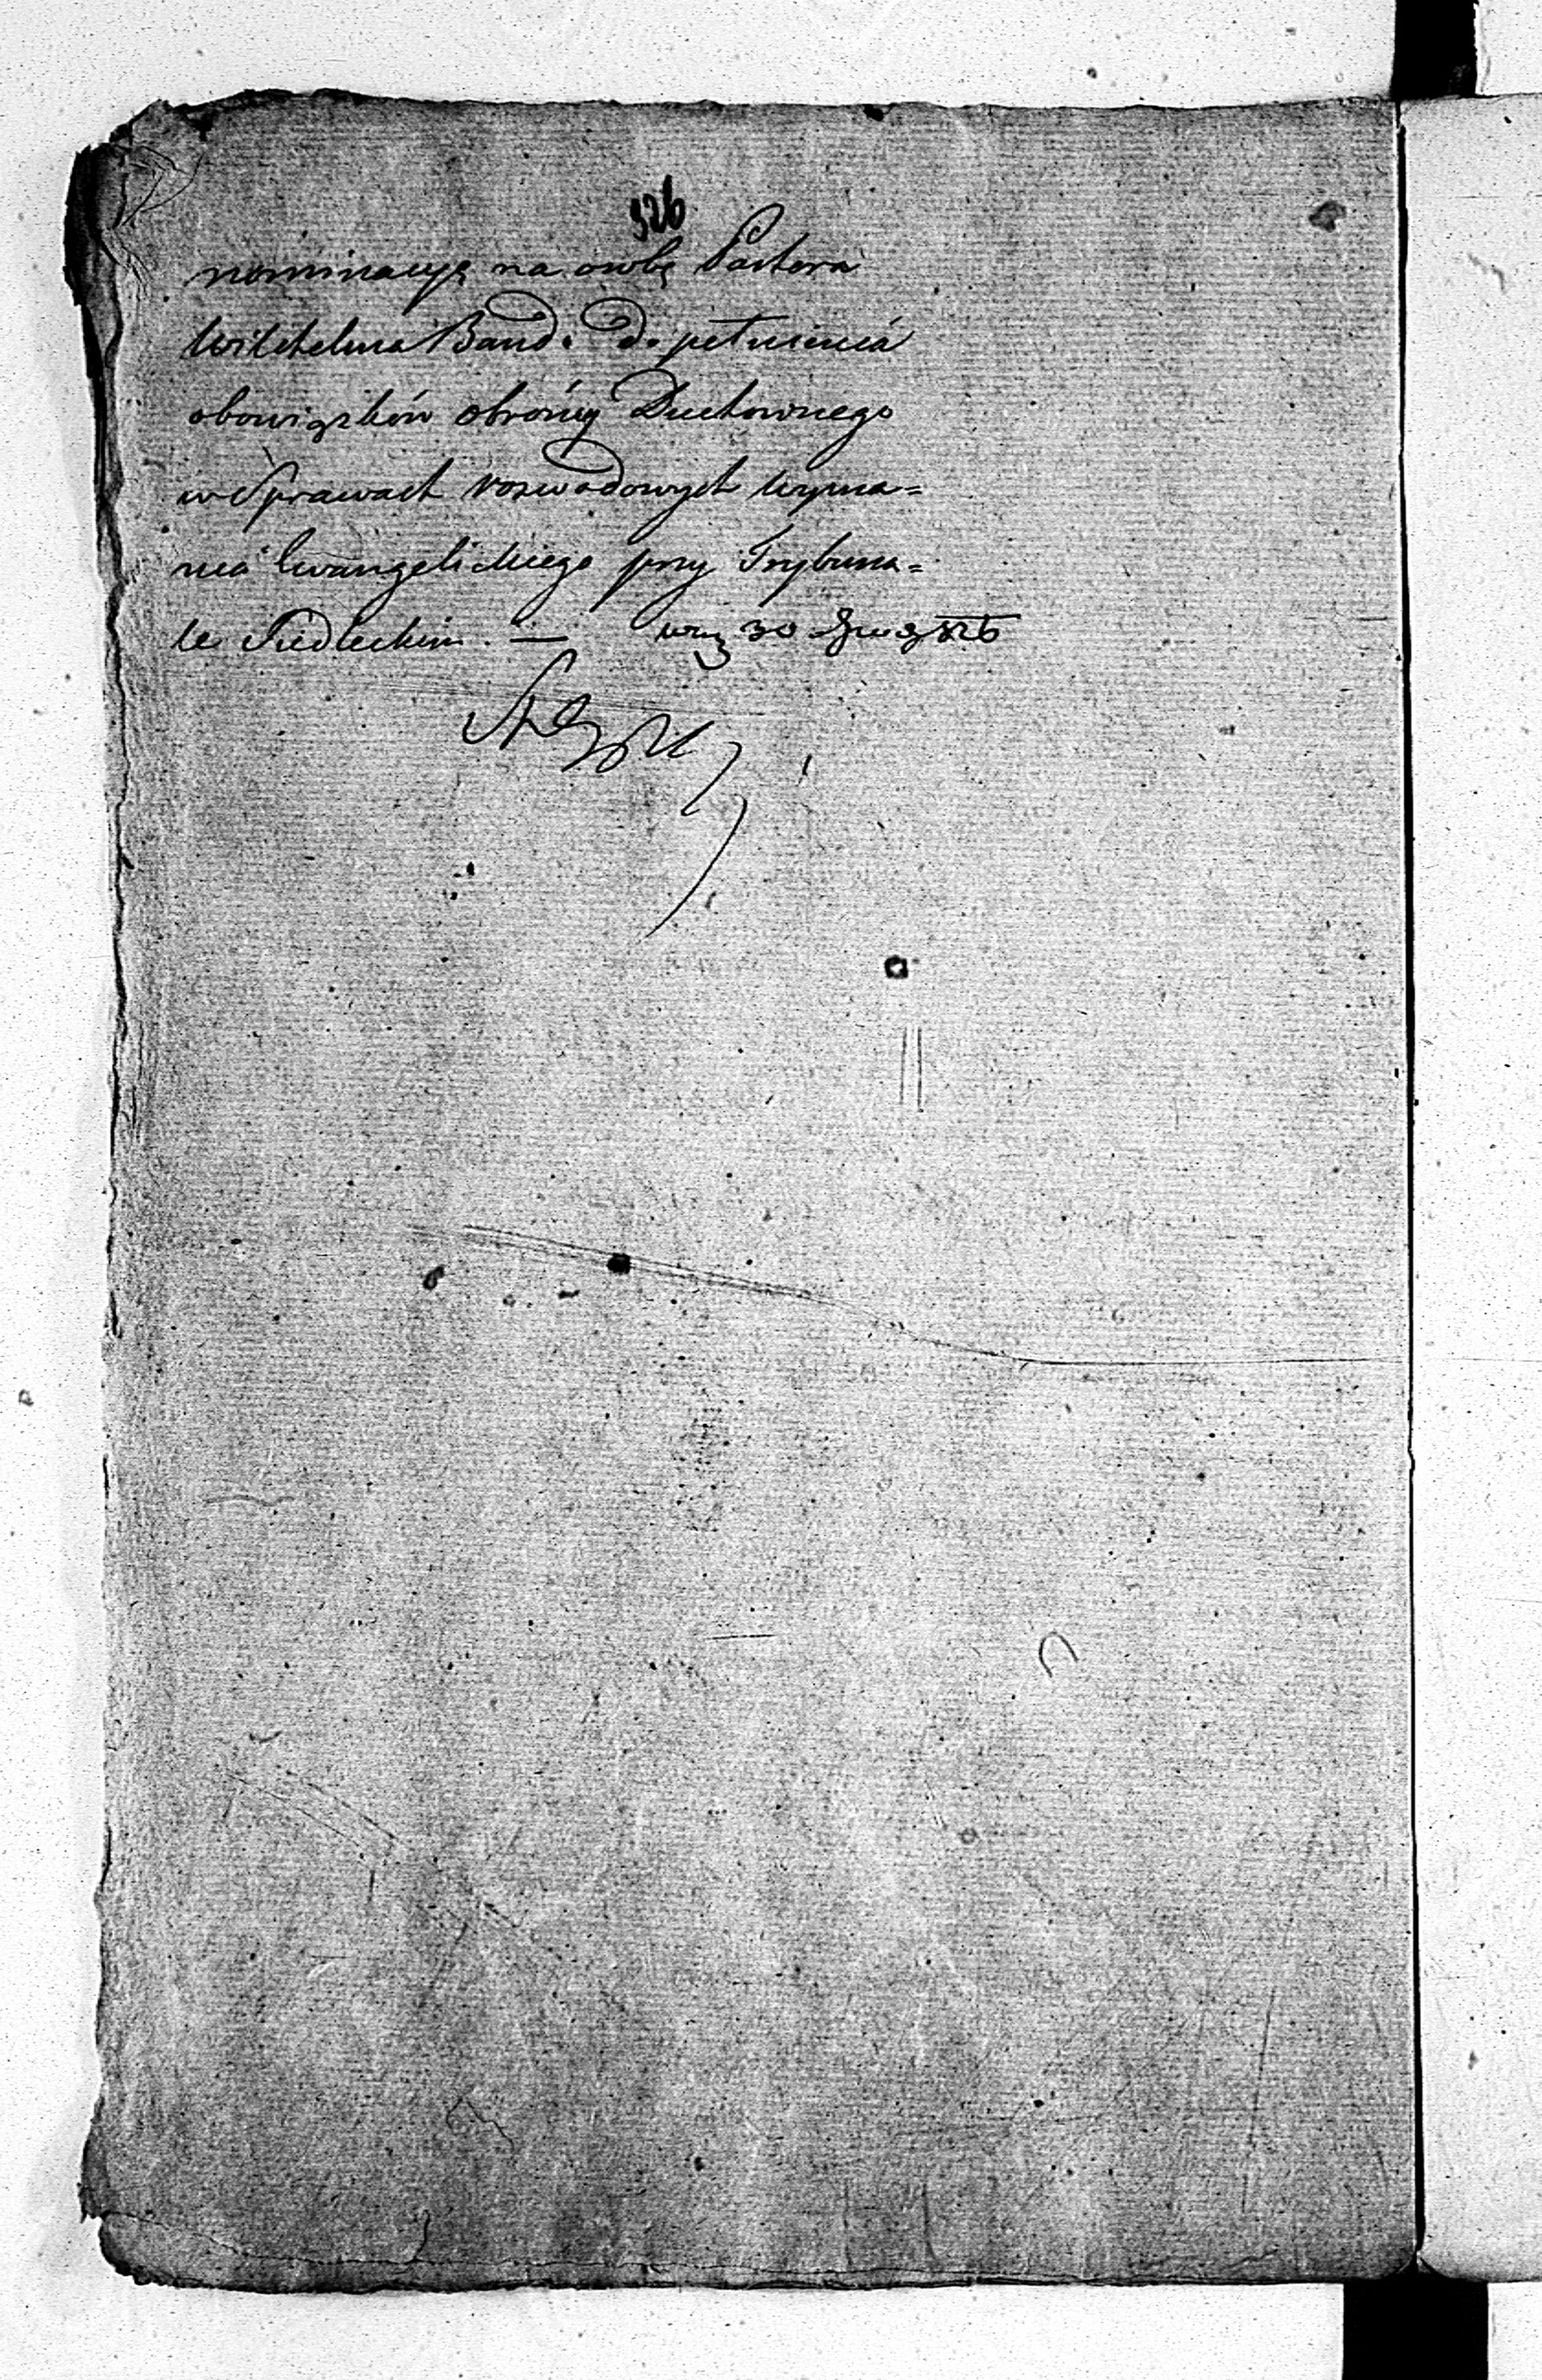 326
nominacyę na osobę Pastora
Wilchelma Band. do pełnienia
obowiązków obrońcy Duchownego
w Sprawach rozwodowych wyzna=
nia Ewangelickiego przy Trybuna=
le Siedleckim. — 30 826